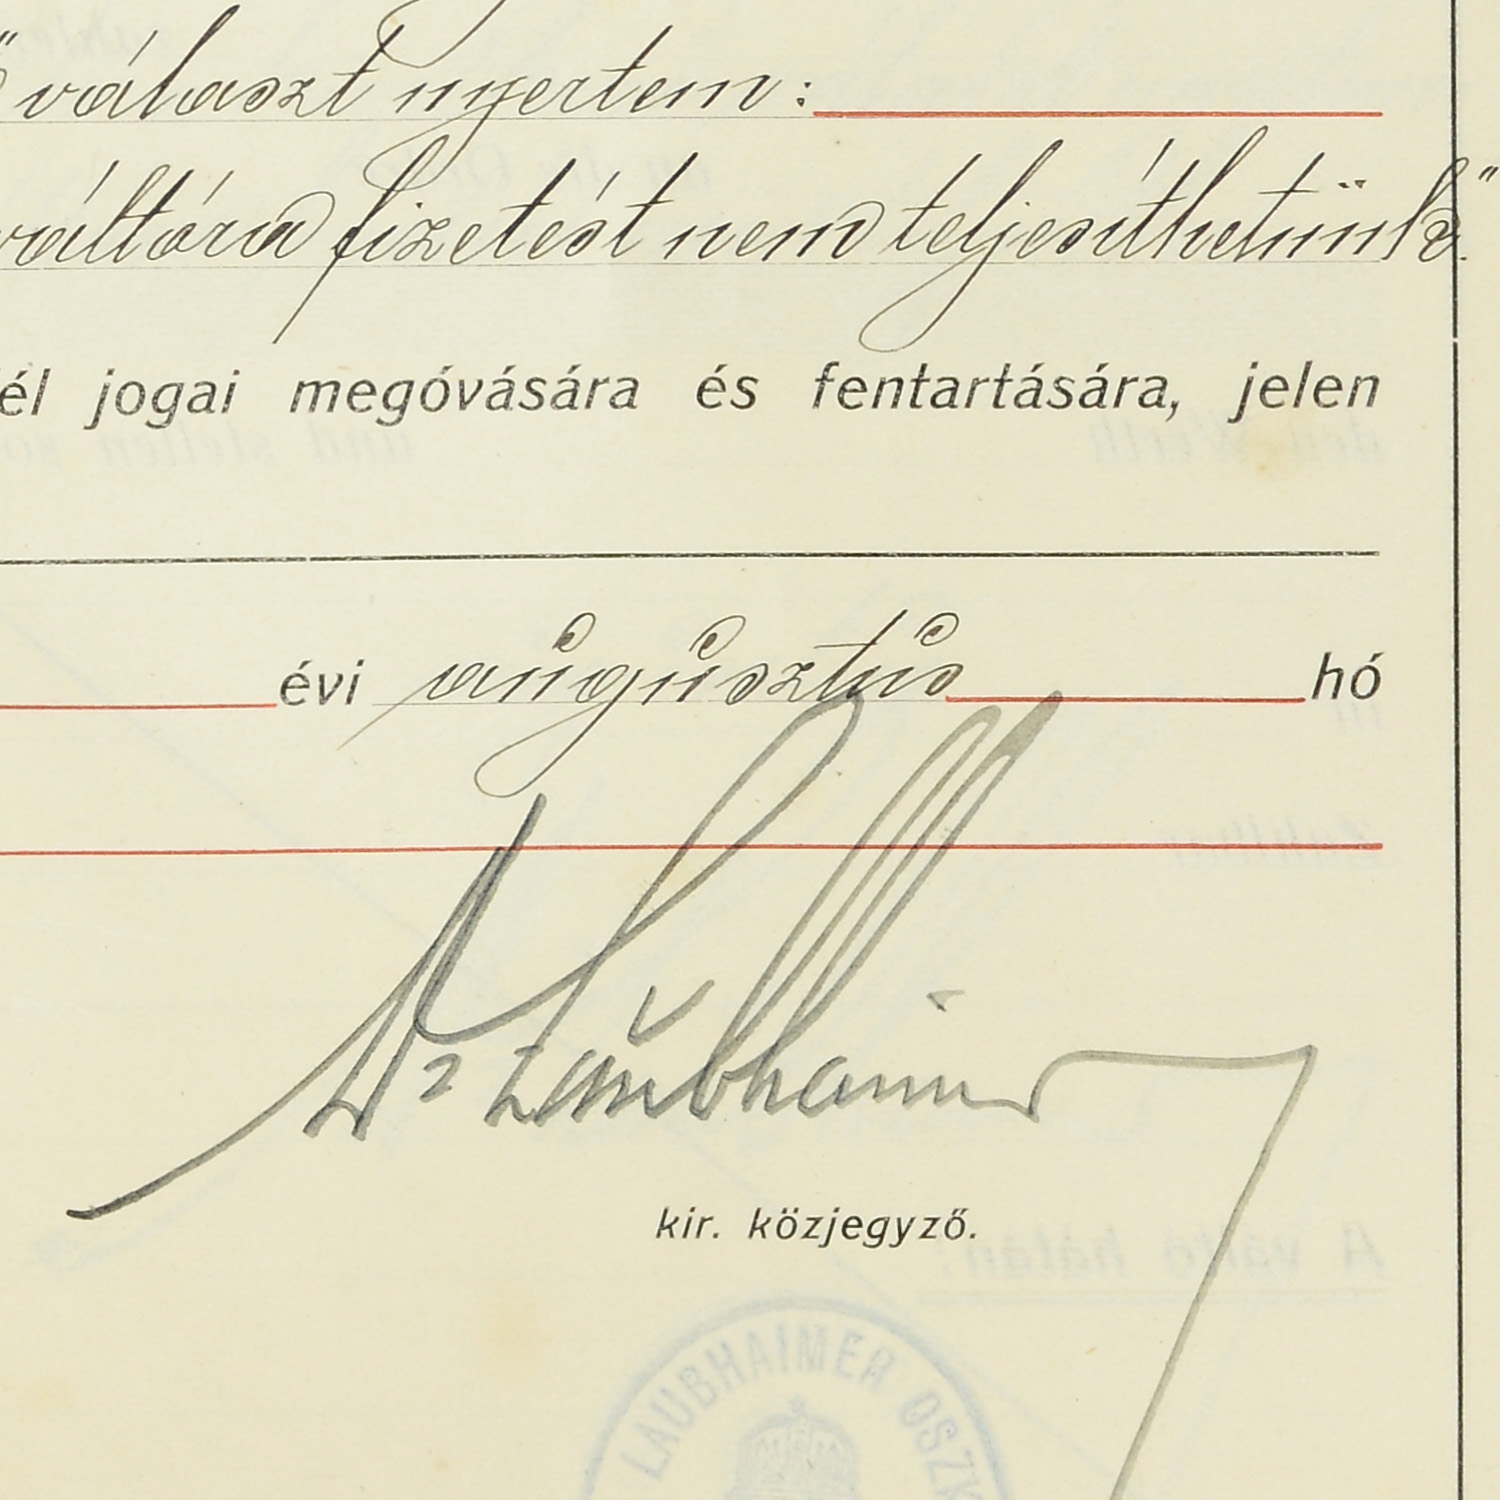 választ nyertem:
váltóra fizetést nem teljesíthetünk."
jogai megóvására és fentartására, jelen
évi augusztus hó
Dr Laubhaimer
kir. közjegyző.
LAUBHAIMER OSZK